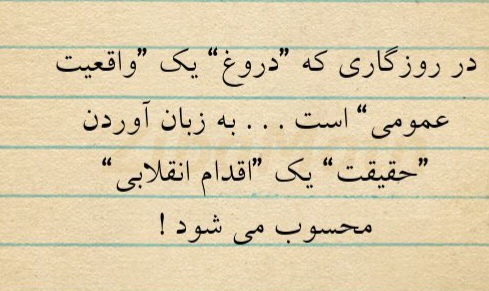 در روزگاری که ”دروغ“ یک ”واقعیت
عمومی“ است . . . به زبان آوردن
”حقیقت“ یک ”اقدام انقلابی“
محسوب می شود !